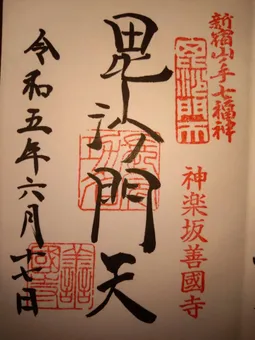 新宿山ノ手七福神
毘沙門天
神楽坂善國寺
毘沙門天
令和五年六月十七日